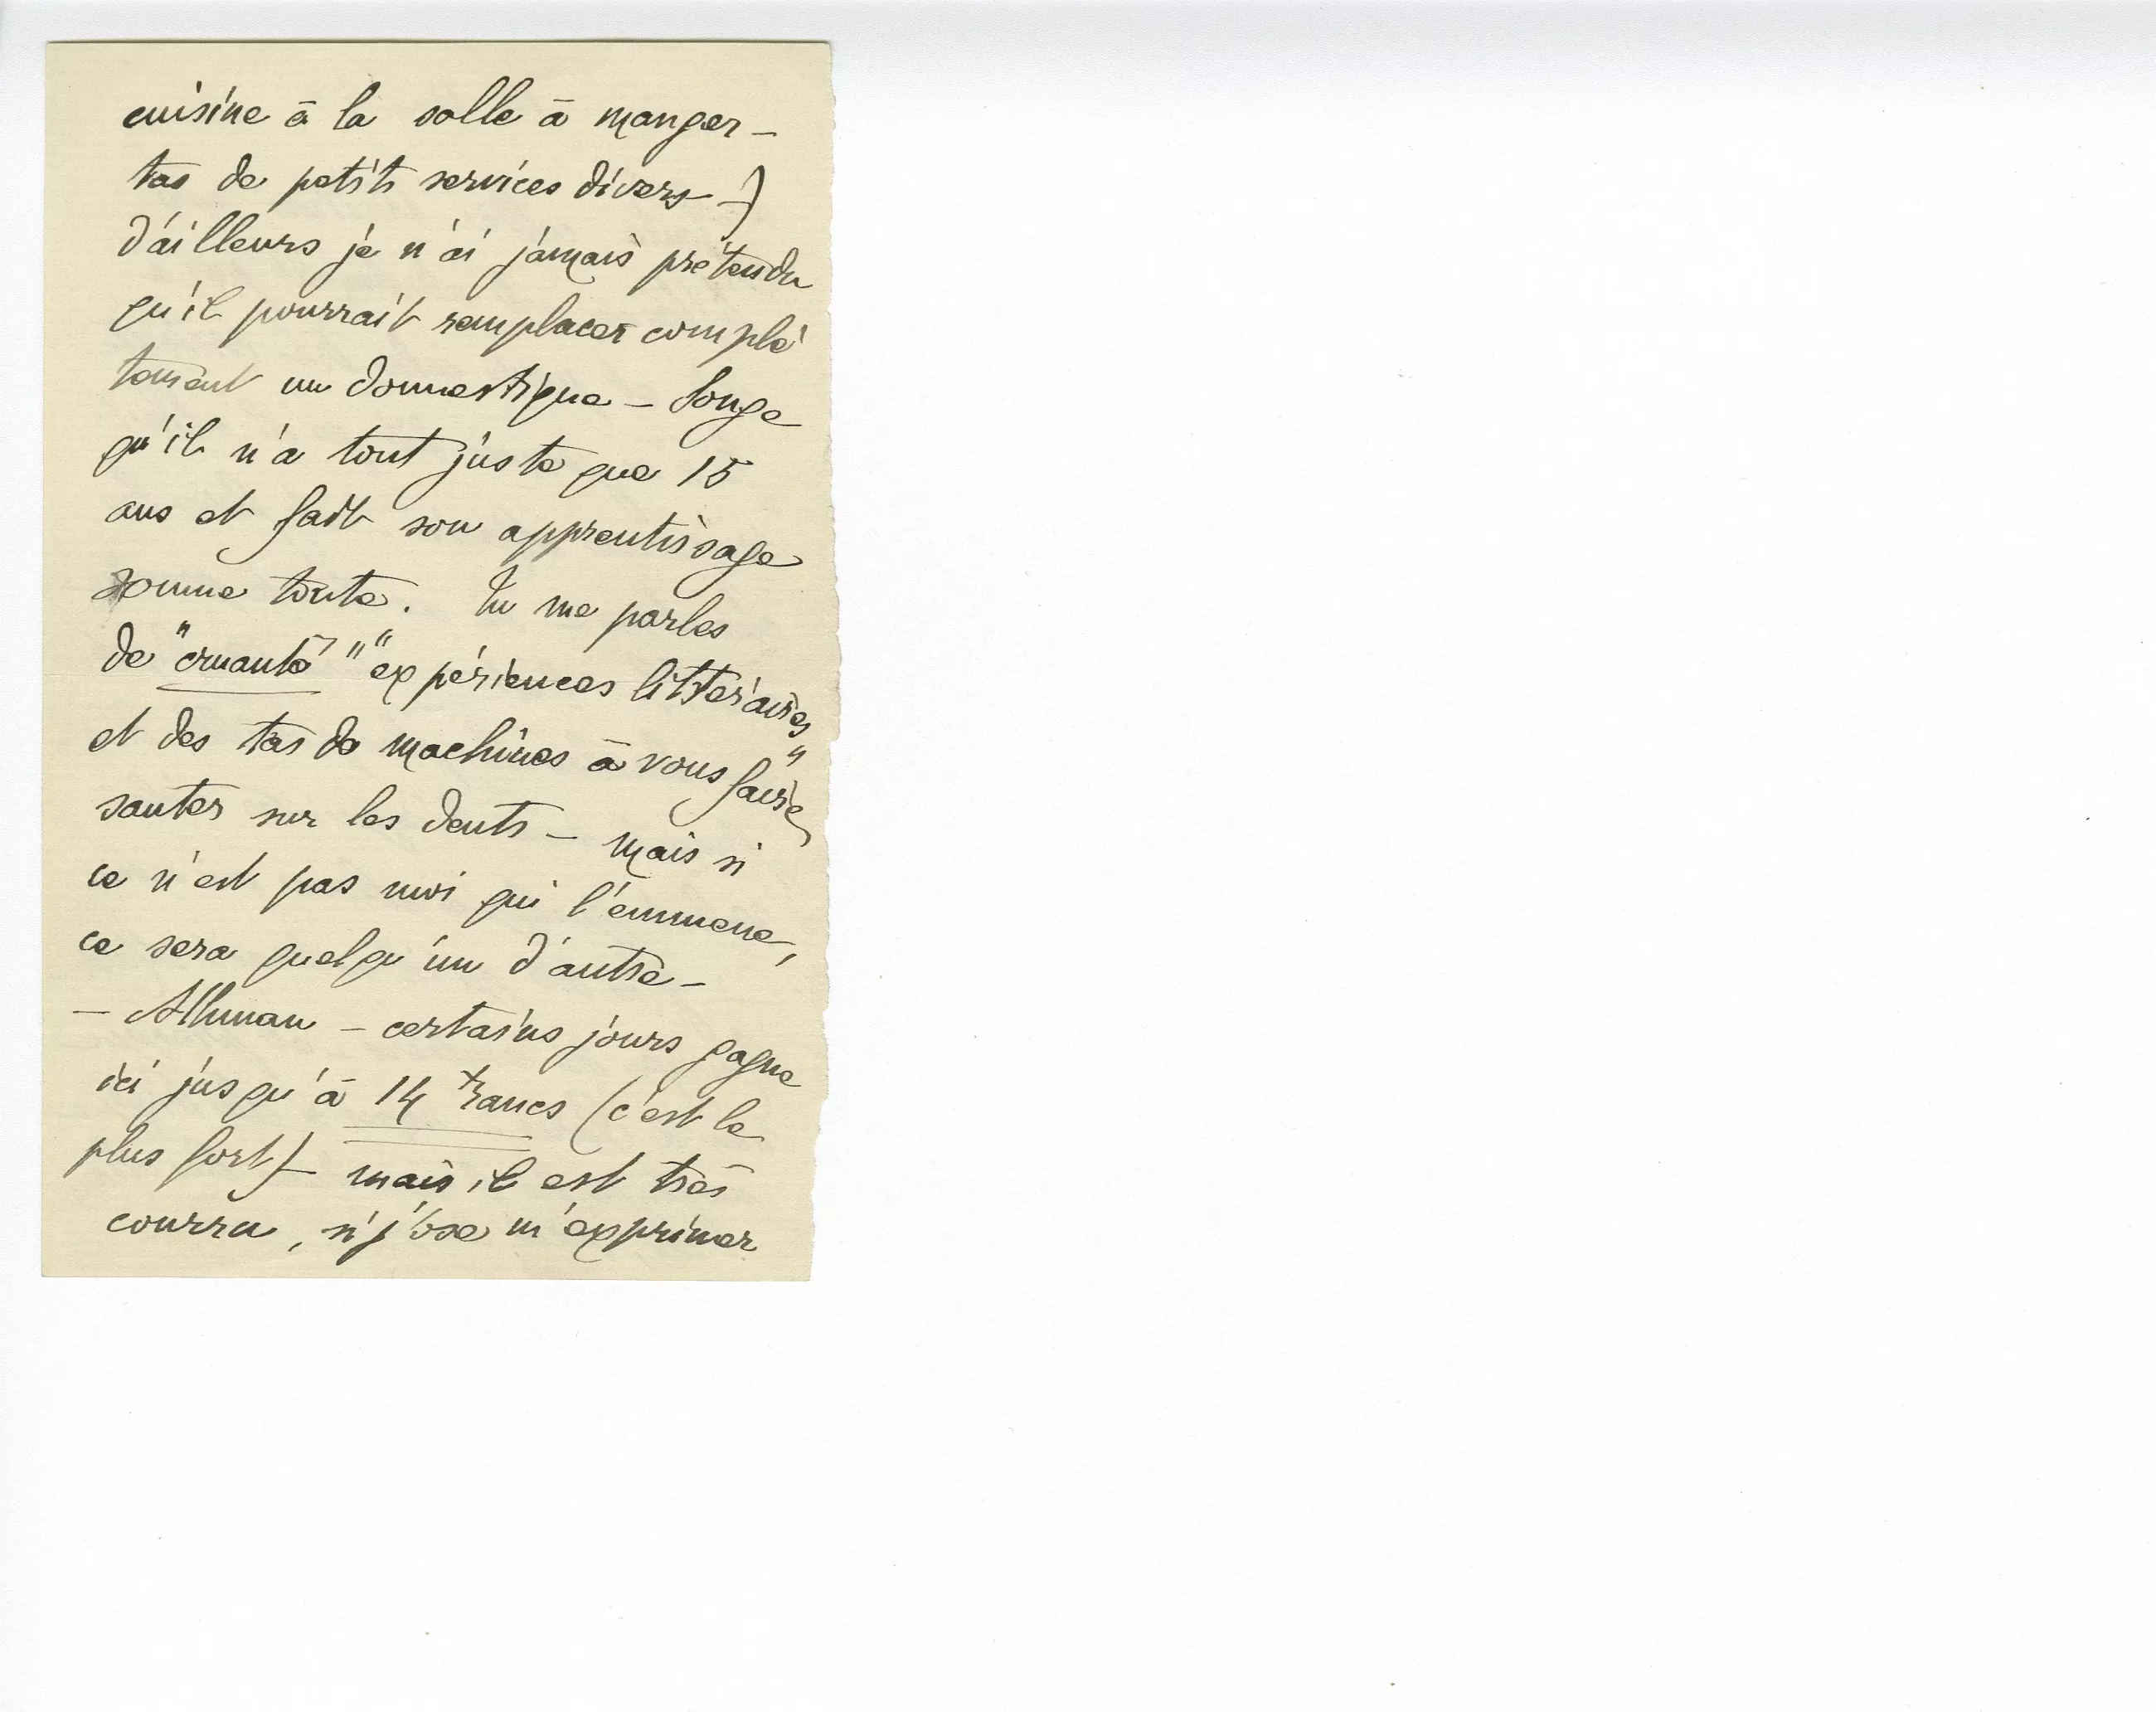 cuisine à la salle à manger –
tas de petits services divers –)
d'ailleurs je n'ai jamais prétendu
qu'il pourrait remplacer complè
tement un domestique – Songe
qu'il n'a tout juste que 15
ans et fait son apprentissage
somme toute. Tu me parles
de "cruauté" "expériences littéraires"
et des tas de machines à vous faire
sauter sur les dents – mais si
ce n'est pas moi qui l'emmene,
ce sera quelqu'un d'autre –
– Athman – certains jours gagne
ici jusqu'à 14 francs (c'est le
plus fort) – mais il est très
courru, si j'ose m'exprimer